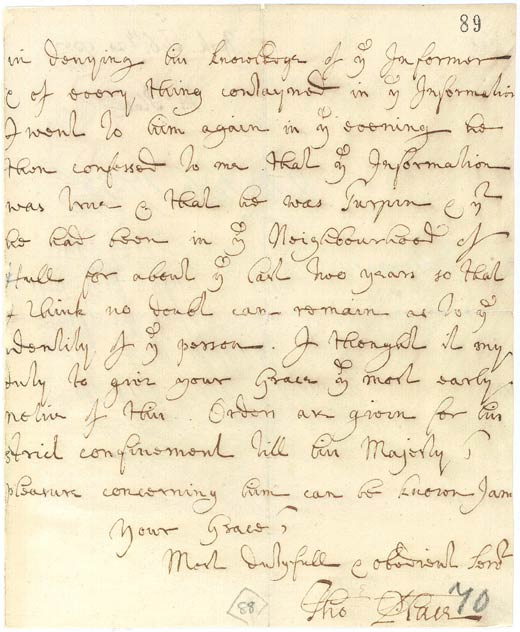 89
in denying his knowledge of yᵉ Informer
& of every thing contayned in yᵉ Information
I went to him again in yᵉ evening he
then confessed to me that yᵉ Information
was true & that he was Turpin & yᵗ
he had been in yᵉ Neighbourhood of
Hull for about yᵉ last two years so that
I think no doubt can remain as to yᵉ
identity of yᵉ person. I thought it my
duty to give your Grace yᵉ most early
notice of this Orders are given for his
strict confinement till his Majesty's
pleasure concerning him can be known I am
Your Grace's
Most dutyfull & obedient Servᵗ
Tho Place
70
88